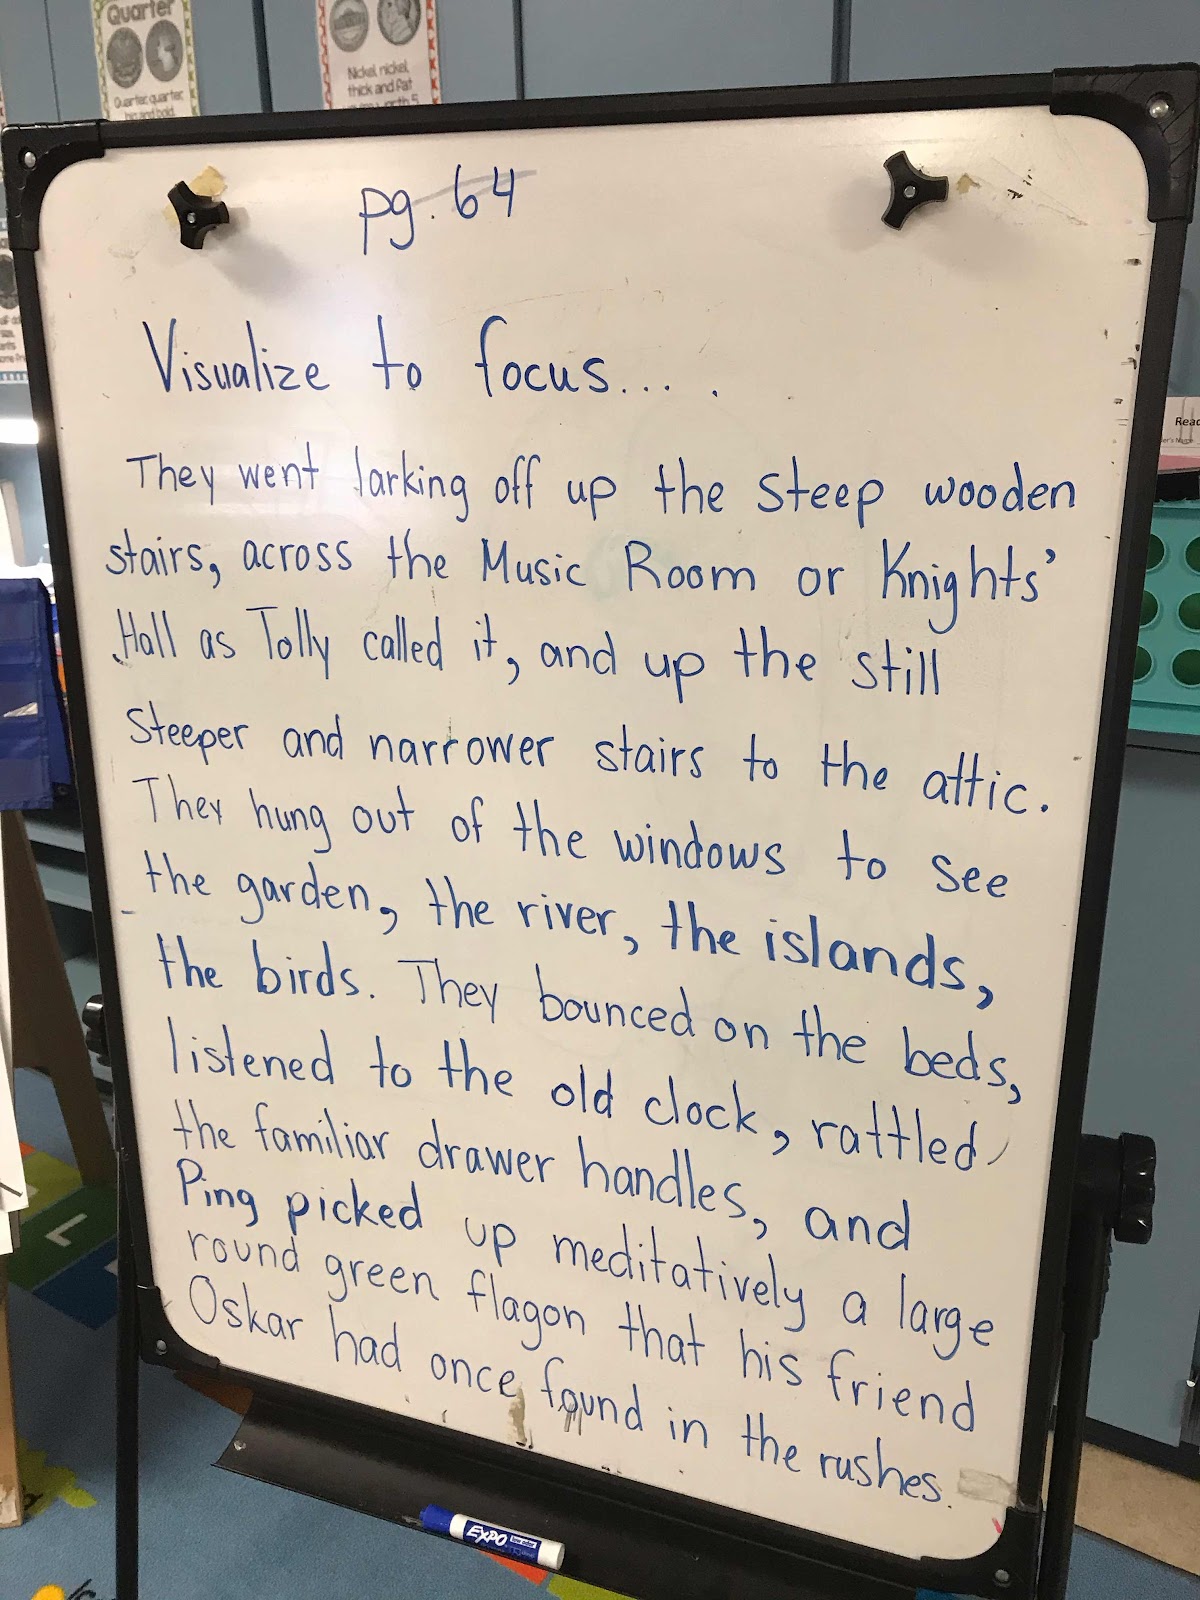 Quarter
Quarter, quarter,
Nickel, nickel,
thick and fat
pg. 64
Visualize to focus.... .
They went larking off up the steep wooden
stairs, across the Music Room or Knights'
Hall as Tolly called it, and up the still
steeper and narrower stairs to the attic.
They hung out of the windows to see
the garden, the river, the islands,
the birds. They bounced on the beds,
listened to the old clock, rattled
the familiar drawer handles, and
Ping picked up meditatively a large
round green flagon that his friend
Oskar had once found in the rushes.
EXPO
low odor